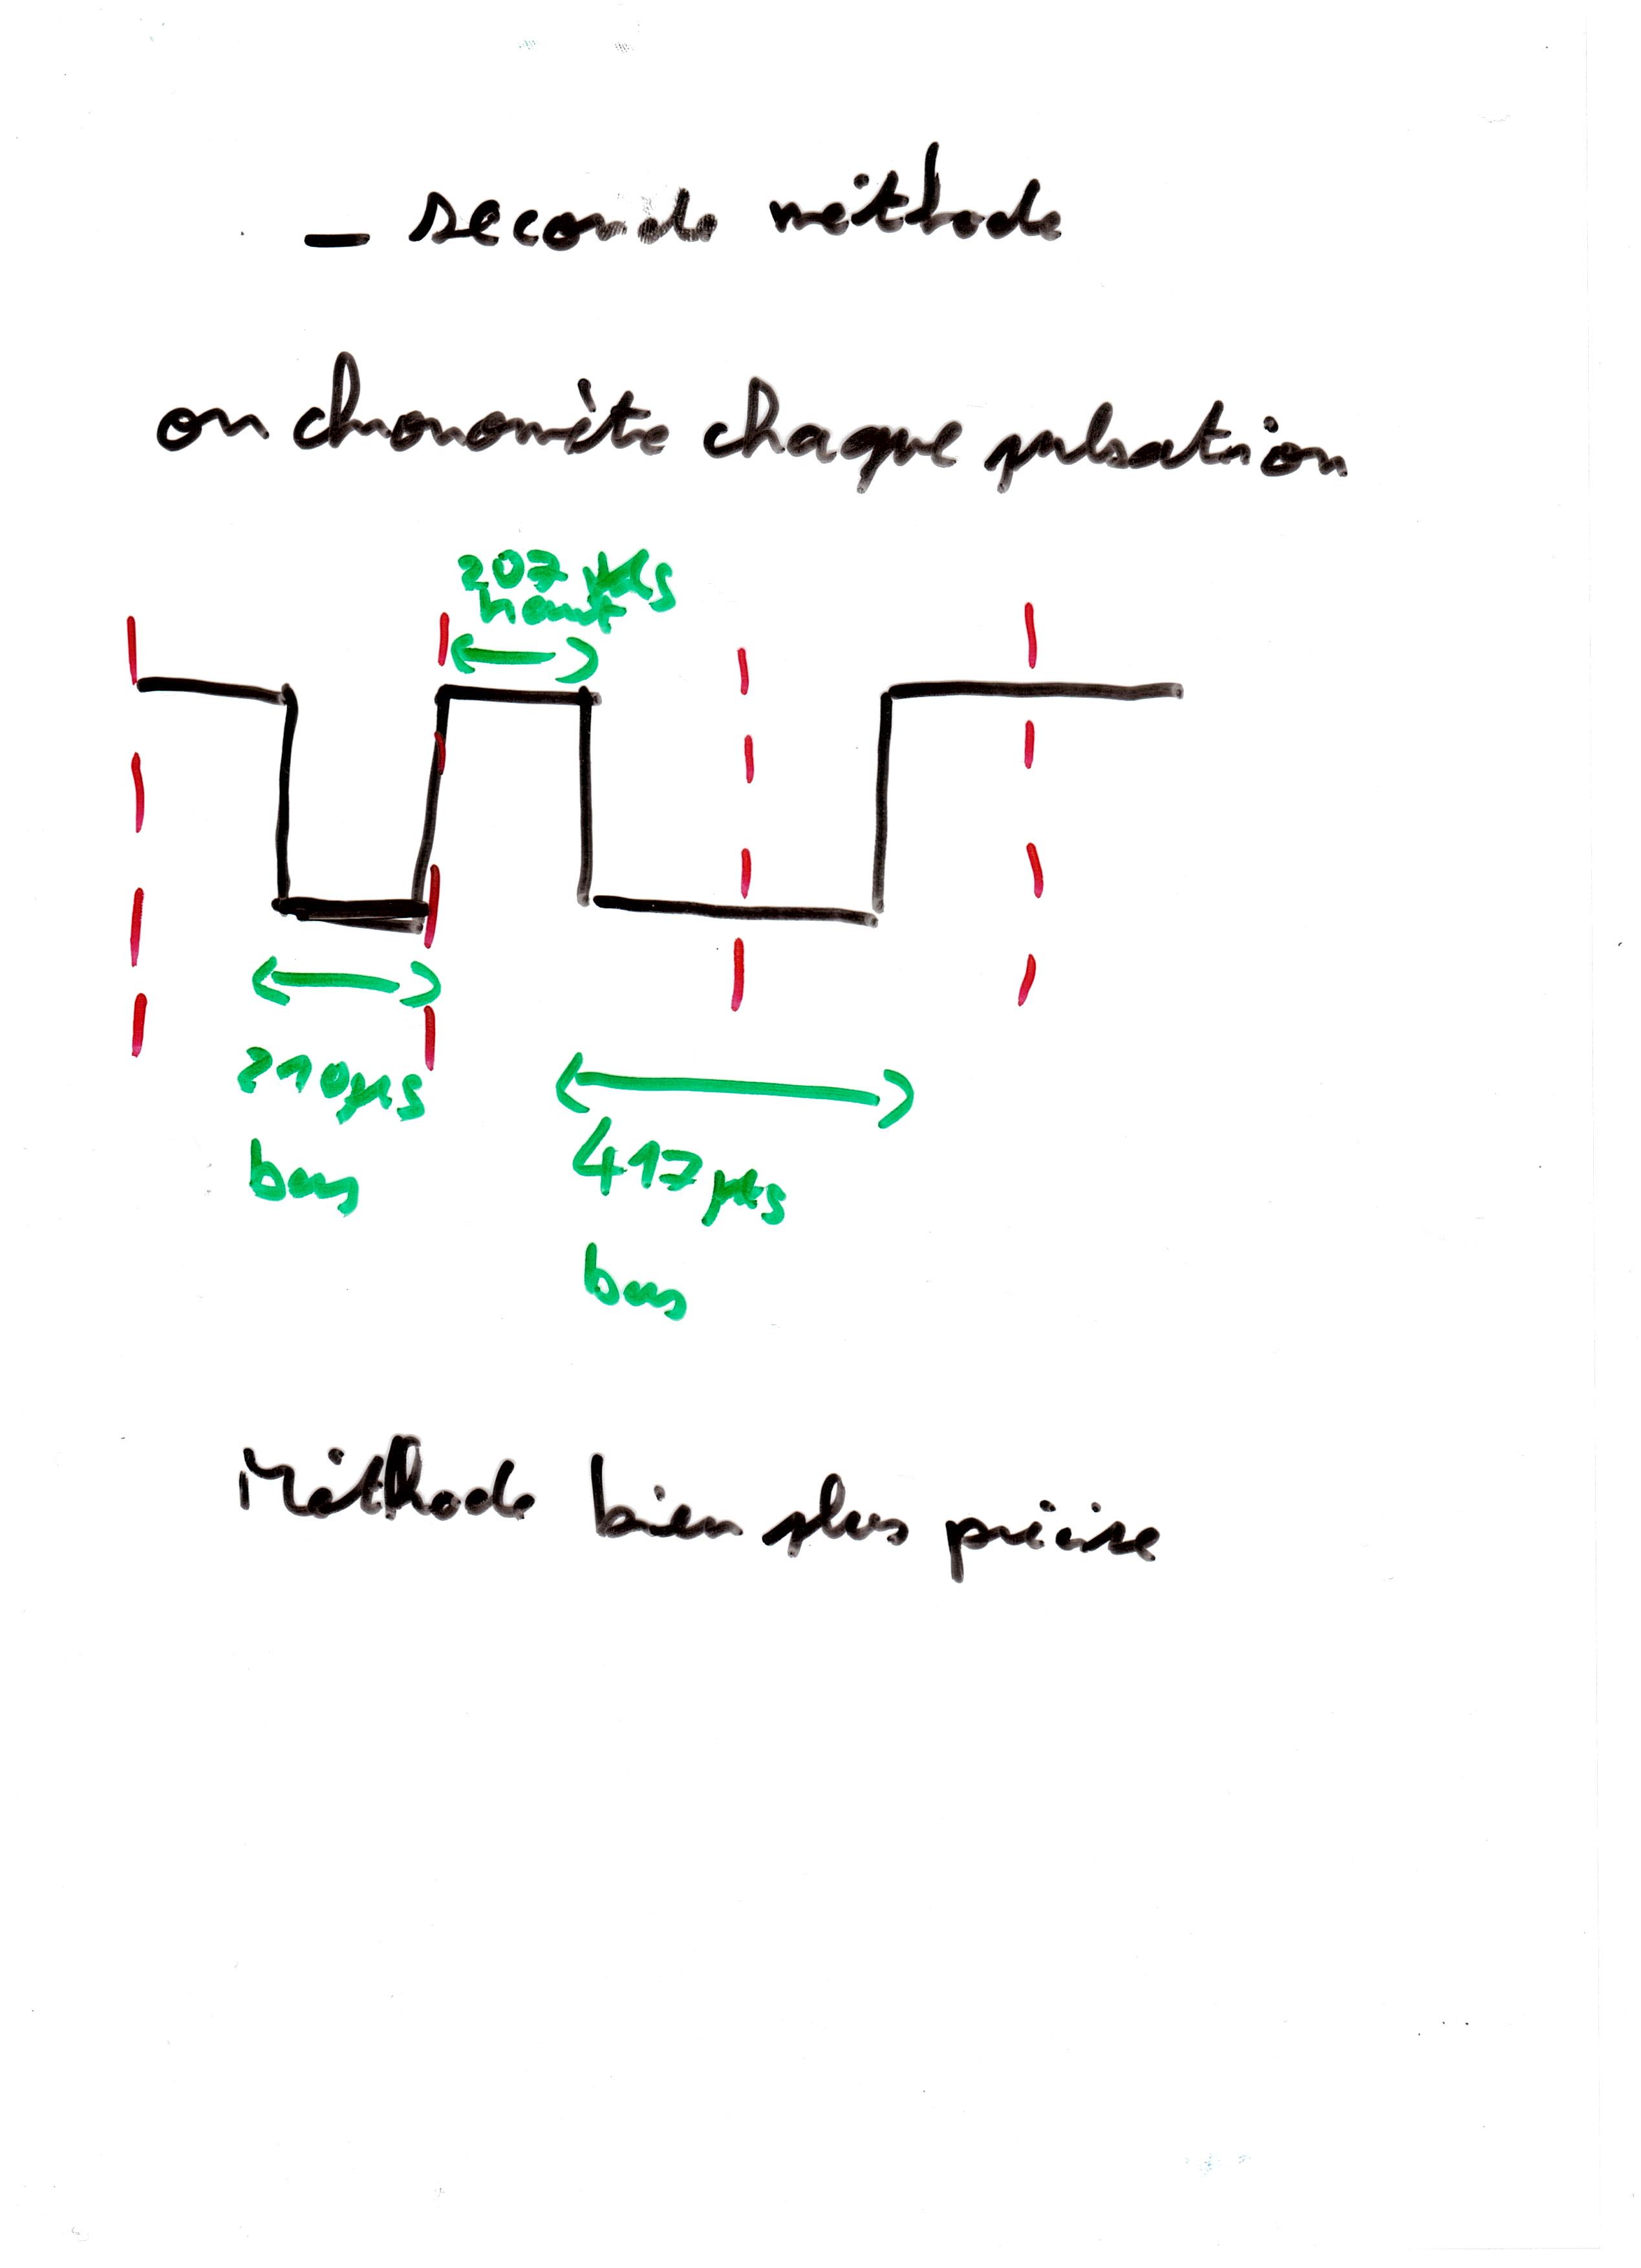 — seconde méthode
on chronomètre chaque pulsation
207 µs
haut
210µs
bas
417 µs
bas
Méthode bien plus précise